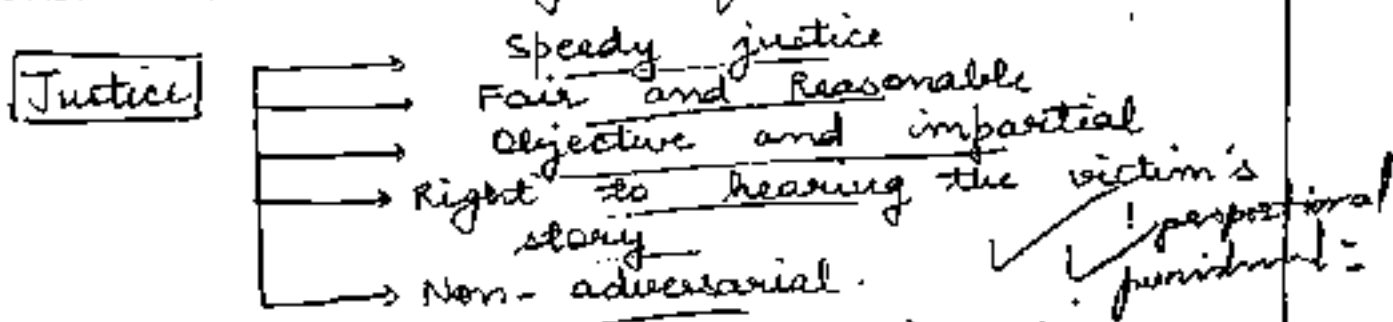 Justice
Speedy justice
Fair and Reasonable
Objective and impartial
Right to hearing the victim's
story
Non-adversarial.
punishment